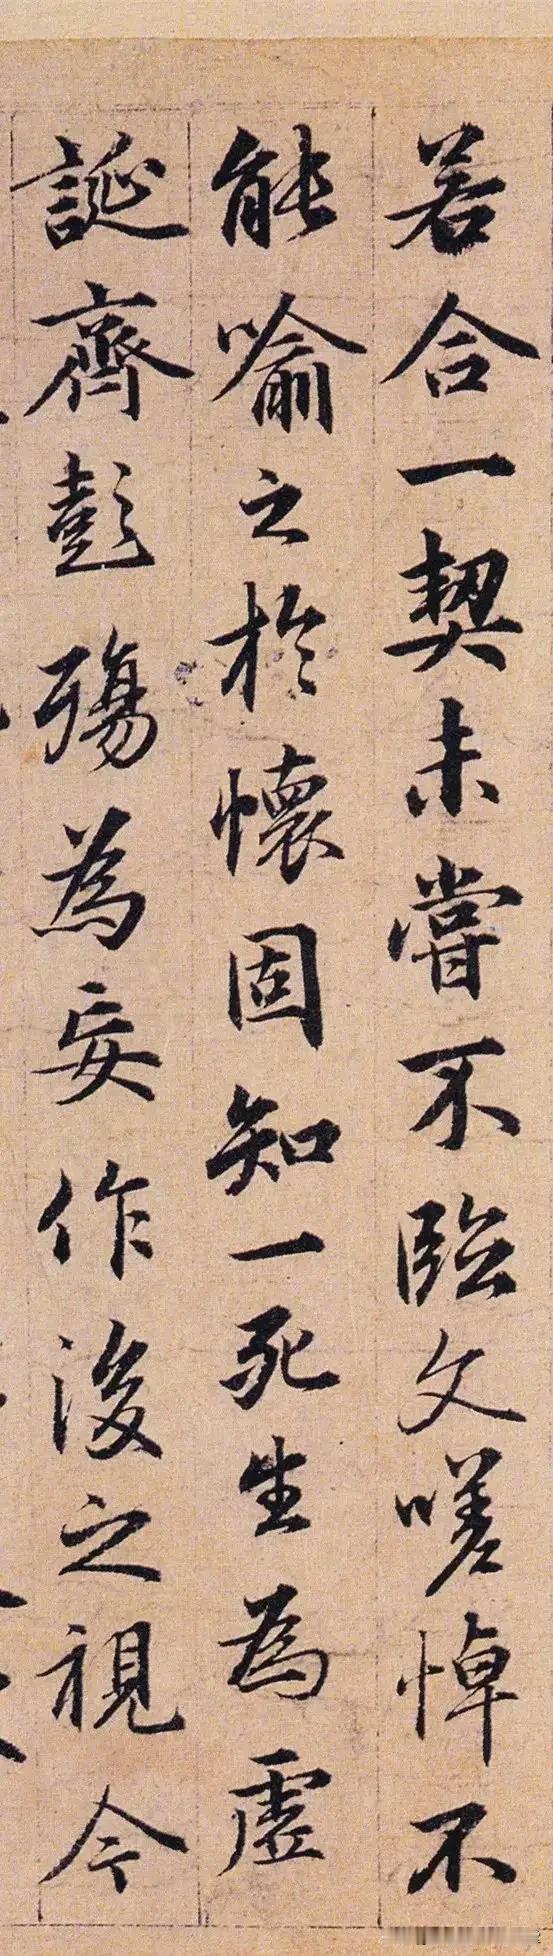 若合一契未嘗不臨文嗟悼不
能喻之於懷固知一死生為虛
誕齊彭殤為妄作後之視今